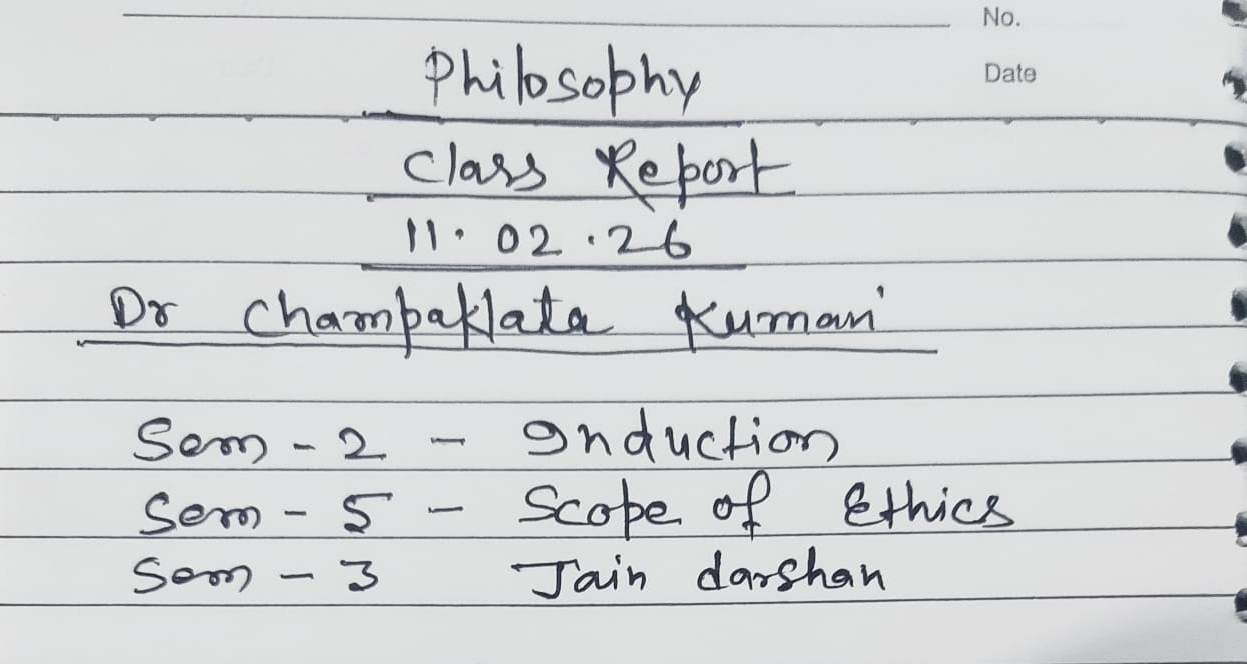 No.
Philosophy
Date
Class Report
11. 02 .26
Dr Champaklata Kumari
Sem - 2 - Induction
Sem - 5 - Scope of Ethics
Sem - 3 Jain darshan